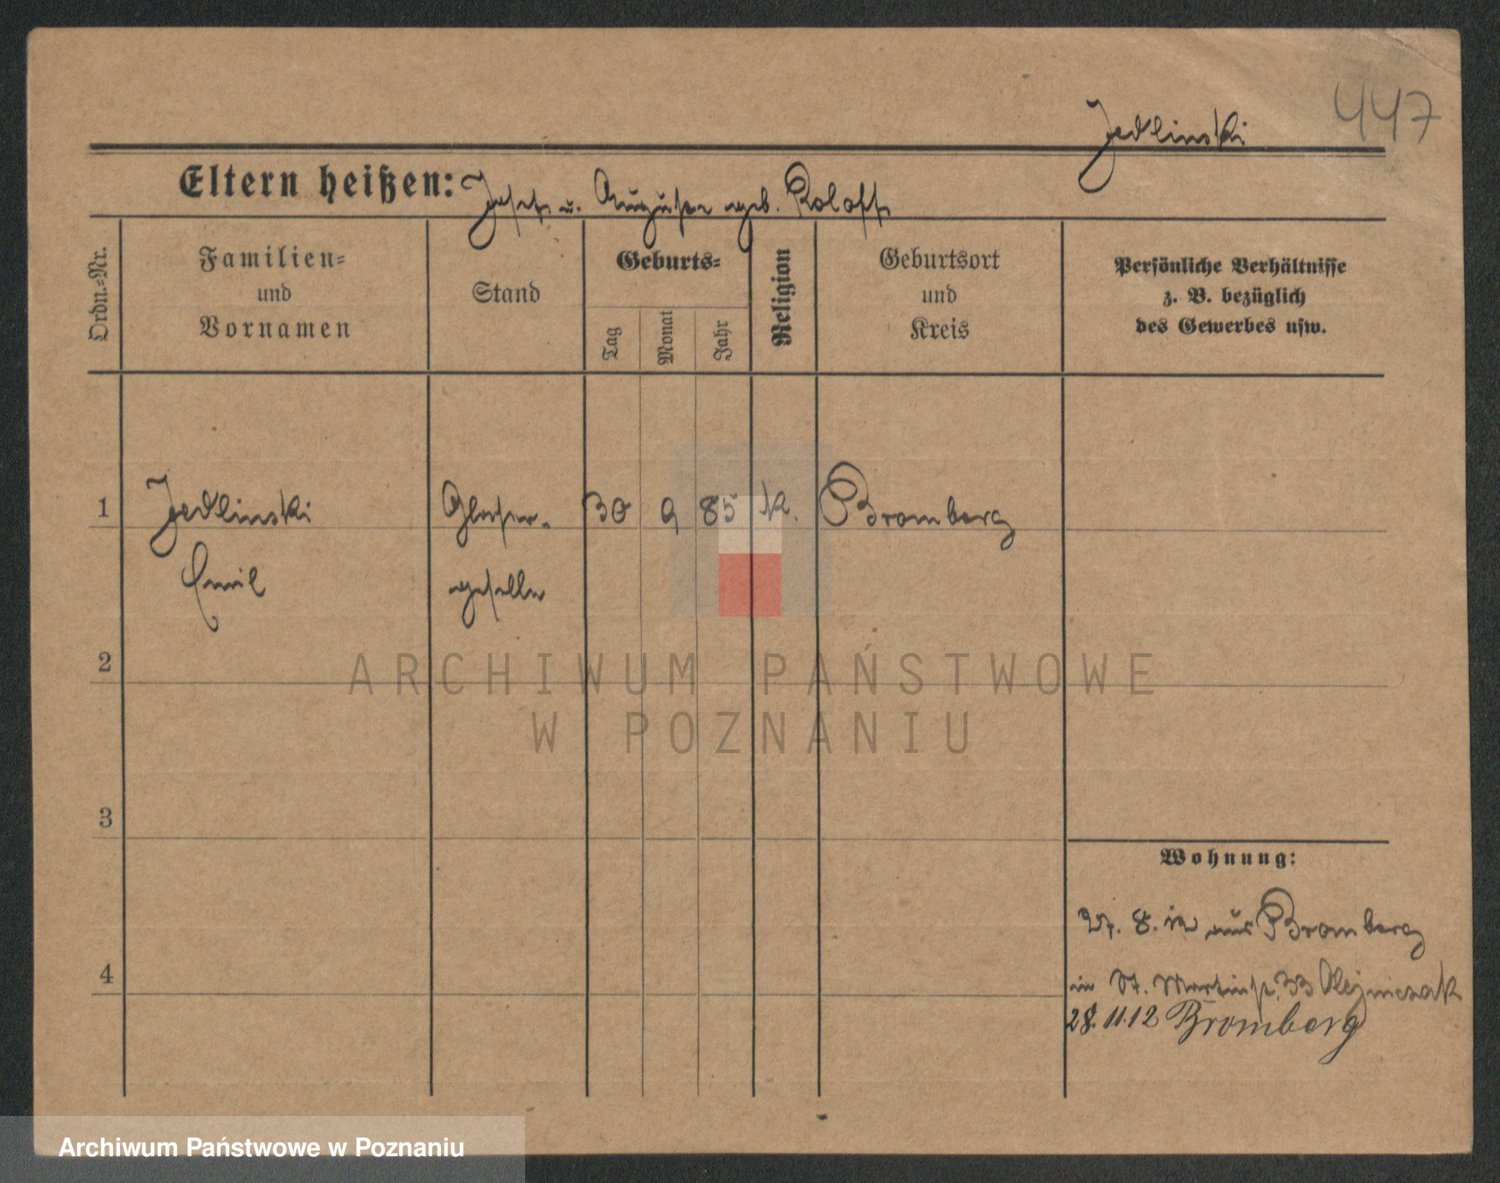 447
Jedlinski
Eltern heißen: Josef u. Auguste geb. Roloff
Ordn.=Nr.
Familien=
und
Vornamen
Stand
Geburts=
Tag
Monat
Jahr
Religion
Geburtsort
und
Kreis
Persönliche Verhältnisse
z. B. bezüglich
des Gewerbes usw.
1 Jedlinski Glaser- 30 9 85 K. Bromberg
Emil geselle
2
3
4
Wohnung:
27. 8. 12 aus Bromberg
in St. Martinst. 33
28.11.12 Bromberg
ARCHIWUM PAŃSTWOWE
W POZNANIU
Archiwum Państwowe w Poznaniu